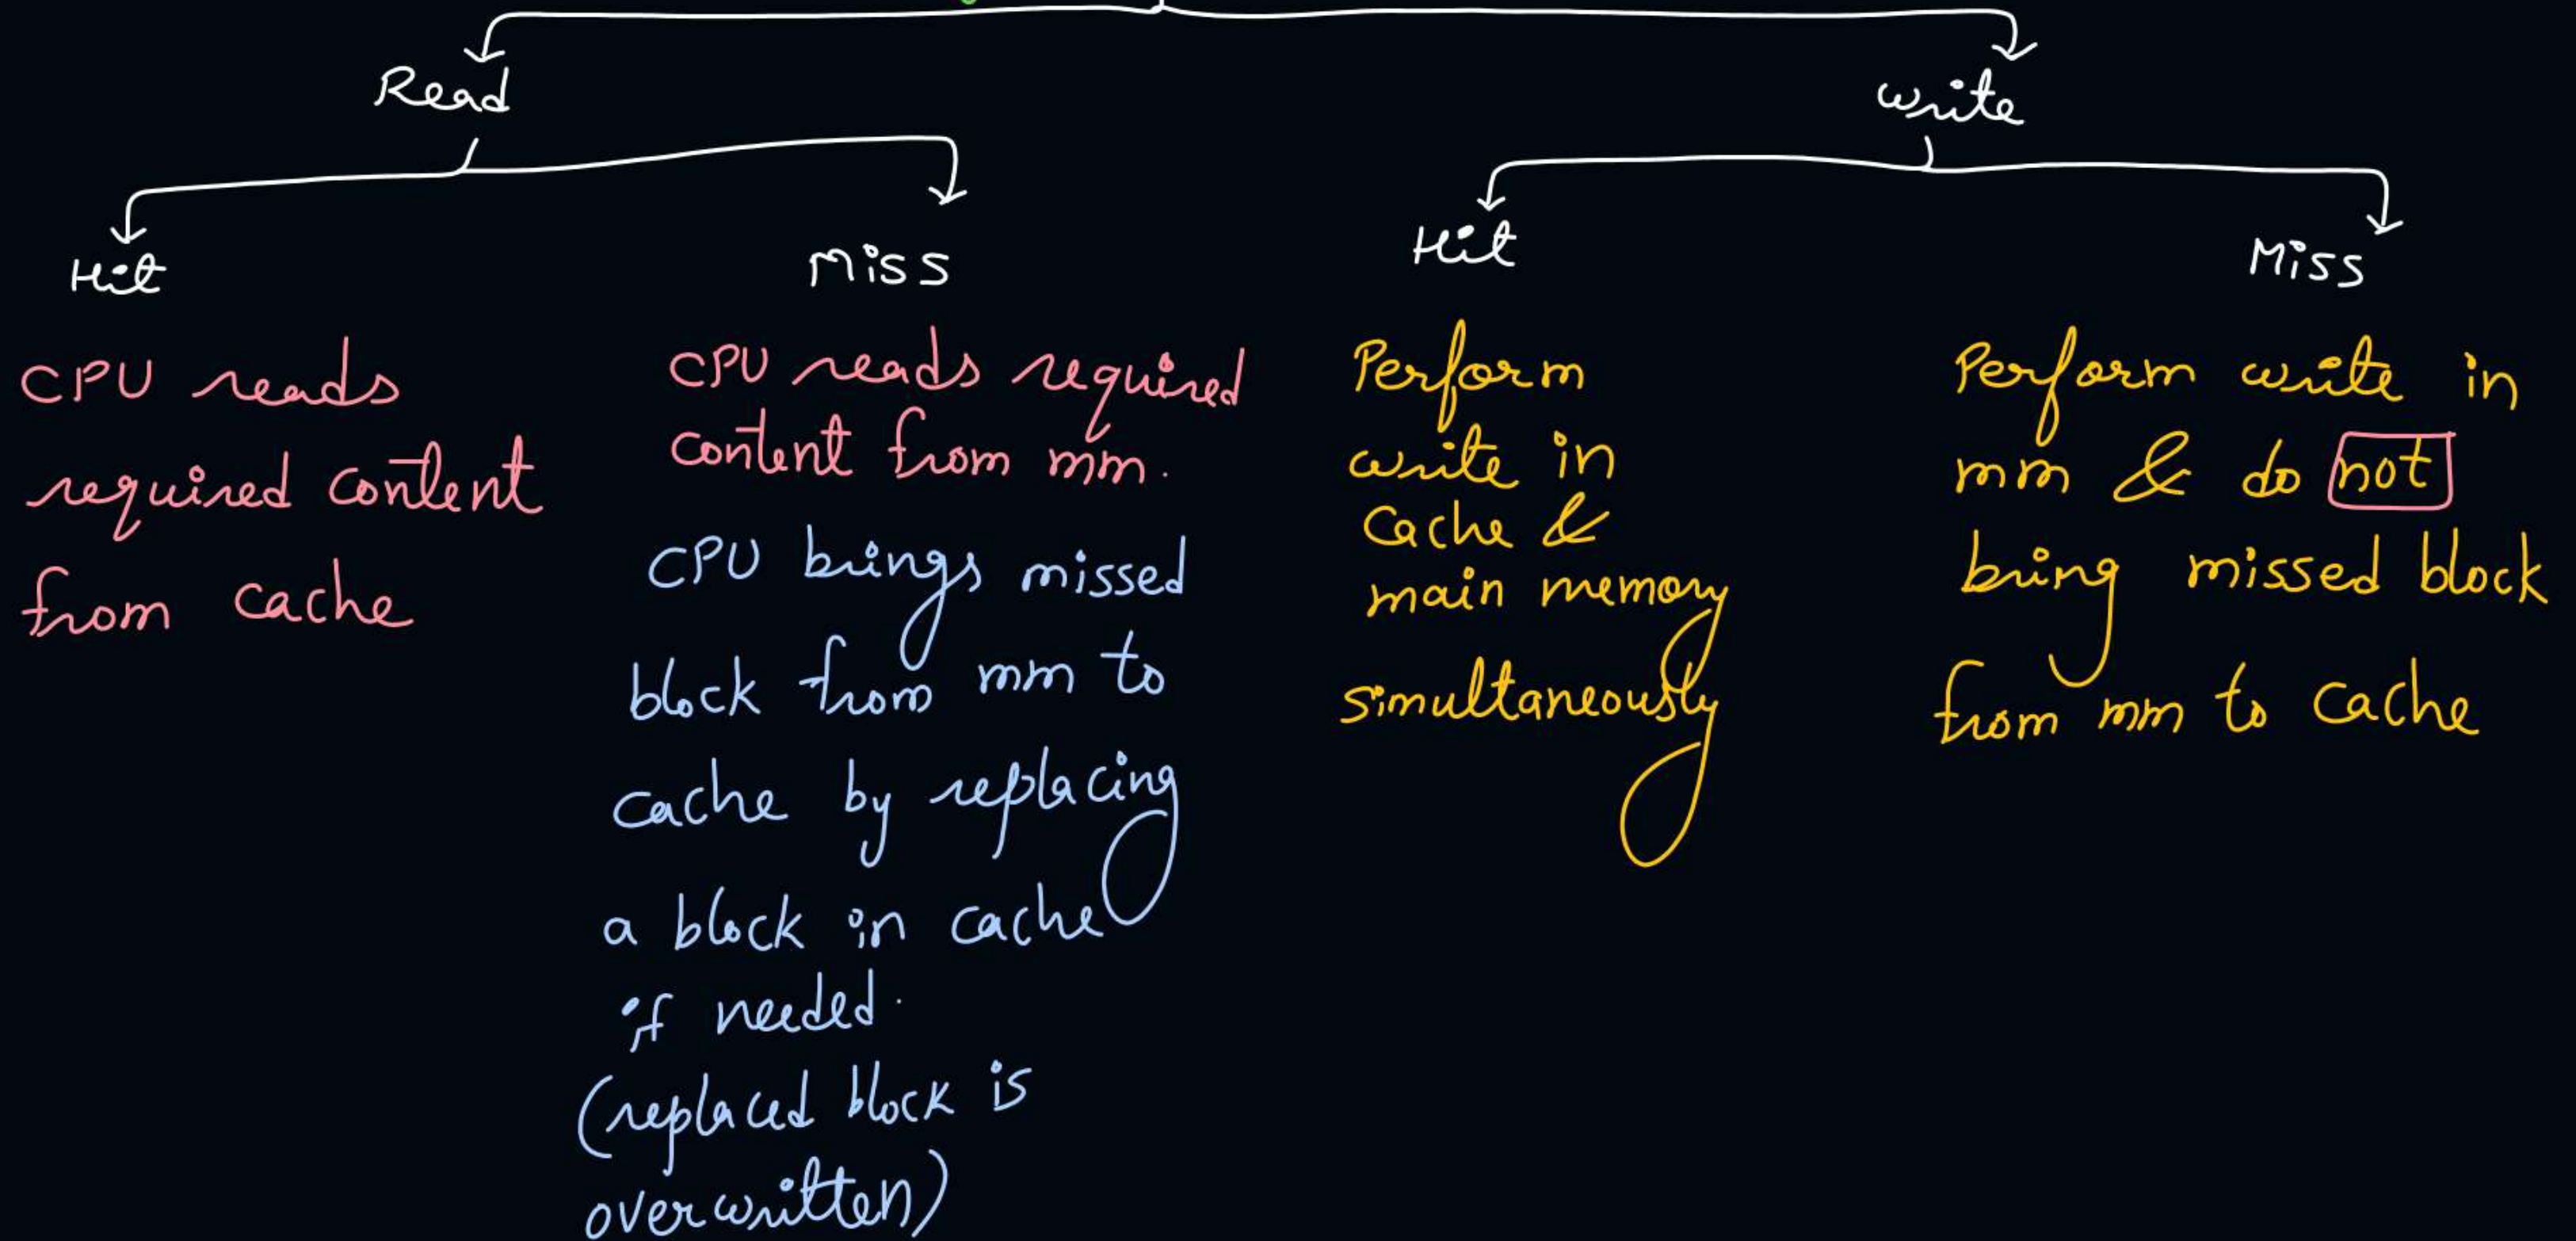 Read
Write
Hit
Miss
Hit
Miss
CPU reads
required content
from cache
CPU reads required
content from mm.
CPU brings missed
block from mm to
cache by replacing
a block in cache
if needed.
(replaced block is
overwritten)
Perform
write in
Cache &
main memory
simultaneously
Perform write in
mm & do not
bring missed block
from mm to cache